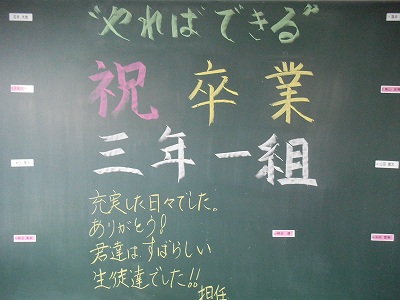 "やればできる"
祝卒業
三年一組
充実した日々でした。
ありがとう!
君達はすばらしい
生徒達でした!!
担任